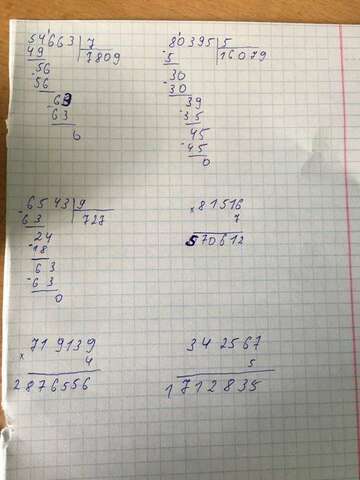 54663 | 7
49 | 7809
-56
56
-63
63
6
80395 | 5
-5 | 16079
-30
30
39
-35
45
-45
0
6543 | 9
-63 | 727
24
-18
63
-63
0
× 81516
7
570612
× 719139
4
2876556
342567
5
1712835